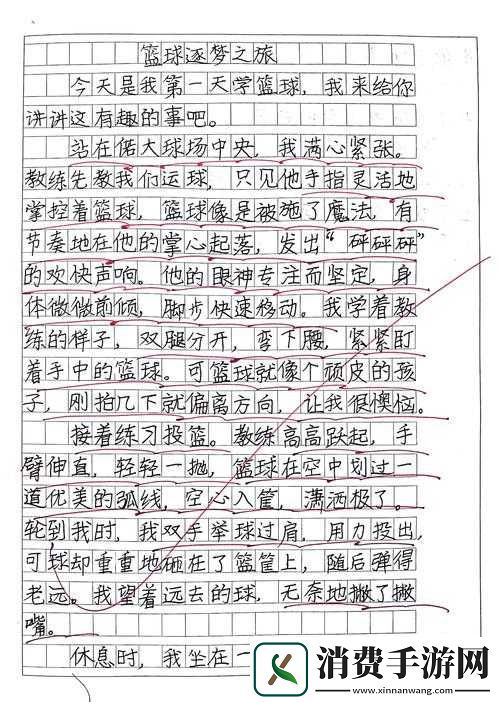 篮球逐梦之旅
今天是我第一天学篮球，我来给你
讲讲这有趣的事吧。
站在偌大球场中央，我满心紧张。
教练先教我们运球，只见他手指灵活地
掌控着篮球，篮球像是被施了魔法，有
节奏地在他的掌心起落，发出“砰砰砰”
的欢快声响。他的眼神专注而坚定，身
体微微前倾，脚步快速移动。我学着教
练的样子，双腿分开，弯下腰，紧紧盯
着手中的篮球。可篮球就像个顽皮的孩
子，刚拍几下就偏离方向，让我很懊恼。
接着练习投篮。教练高高跃起，手
臂伸直，轻轻一抛，篮球在空中划过一
道优美的弧线，空心入筐，潇洒极了。
轮到我时，我双手举球过肩，用力投出，
可球却重重地砸在了篮筐上，随后弹得
老远。我望着远去的球，无奈地撇了撇
嘴。
休息时，我坐在一
消费手游网
www.xinnanwang.com